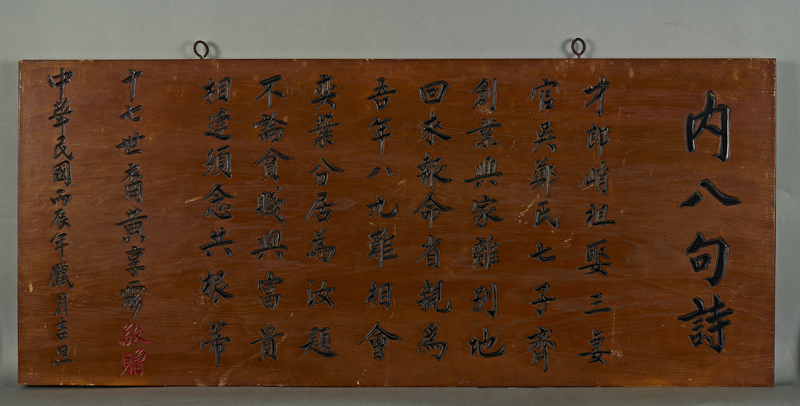 内八句詩
才郎時祖娶三妻
官吳鄭氏七子齊
創業興家離到地
回來報命省親為
吾年八九難相會
奕葉分居為汝題
不論貧賤與富貴
相逢須念共根蒂
十七世裔黃享敬贈
中華民國丙辰年臘月吉旦